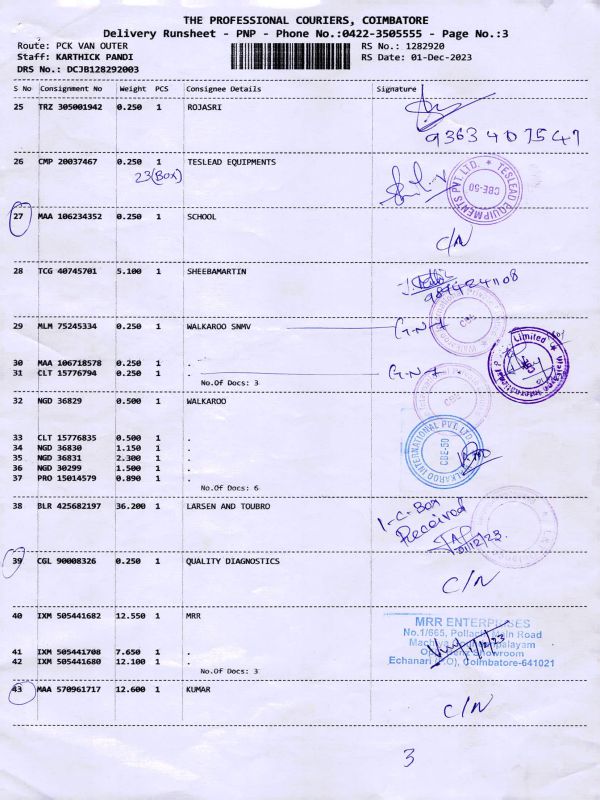 THE PROFESSIONAL COURIERS, COIMBATORE
Delivery Runsheet - PNP - Phone No.:0422-3505555 - Page No.:3
Route: PCK VAN OUTER
RS No.: 1282920
Staff: KARTHICK PANDI
RS Date: 01-Dec-2023
DRS No.: DCJB128292003
S No Consignment No Weight PCS Consignee Details Signature
25 TRZ 305001942 0.250 1 ROJASRI
9363407547
26 CMP 20037467 0.250 1 TESLEAD EQUIPMENTS
23(Box)
TESLEAD EQUIPMENTS PVT LTD. * CBE-50
27 MAA 106234352 0.250 1 SCHOOL
C/N
28 TCG 40745701 5.100 1 SHEEBAMARTIN
29 MLM 75245334 0.250 1 WALKAROO SNMV
CBE
30 MAA 106718578 0.250 1 .
31 CLT 15776794 0.250 1 .
No.Of Docs: 3
32 NGD 36829 0.500 1 WALKAROO
CBE
33 CLT 15776835 0.500 1 .
34 NGD 36830 1.150 1 .
35 NGD 36831 2.300 1 .
36 NGD 30299 1.500 1 .
37 PRO 15014579 0.890 1 .
No.Of Docs: 6
WALKAROO INTERNATIONAL PVT. LTD CBE-50
38 BLR 425682197 36.200 1 LARSEN AND TOUBRO
1-C-Box
Received
01/12/23
39 CGL 90008326 0.250 1 QUALITY DIAGNOSTICS
C/N
40 IXM 505441682 12.550 1 MRR
MRR ENTERPRISES
No.1/665, Pollachi Main Road
41 IXM 505441708 7.650 1 .
42 IXM 505441680 12.100 1 .
Echanari (P.O), Coimbatore-641021
No.Of Docs: 3
43 MAA 570961717 12.600 1 KUMAR
C/N
3